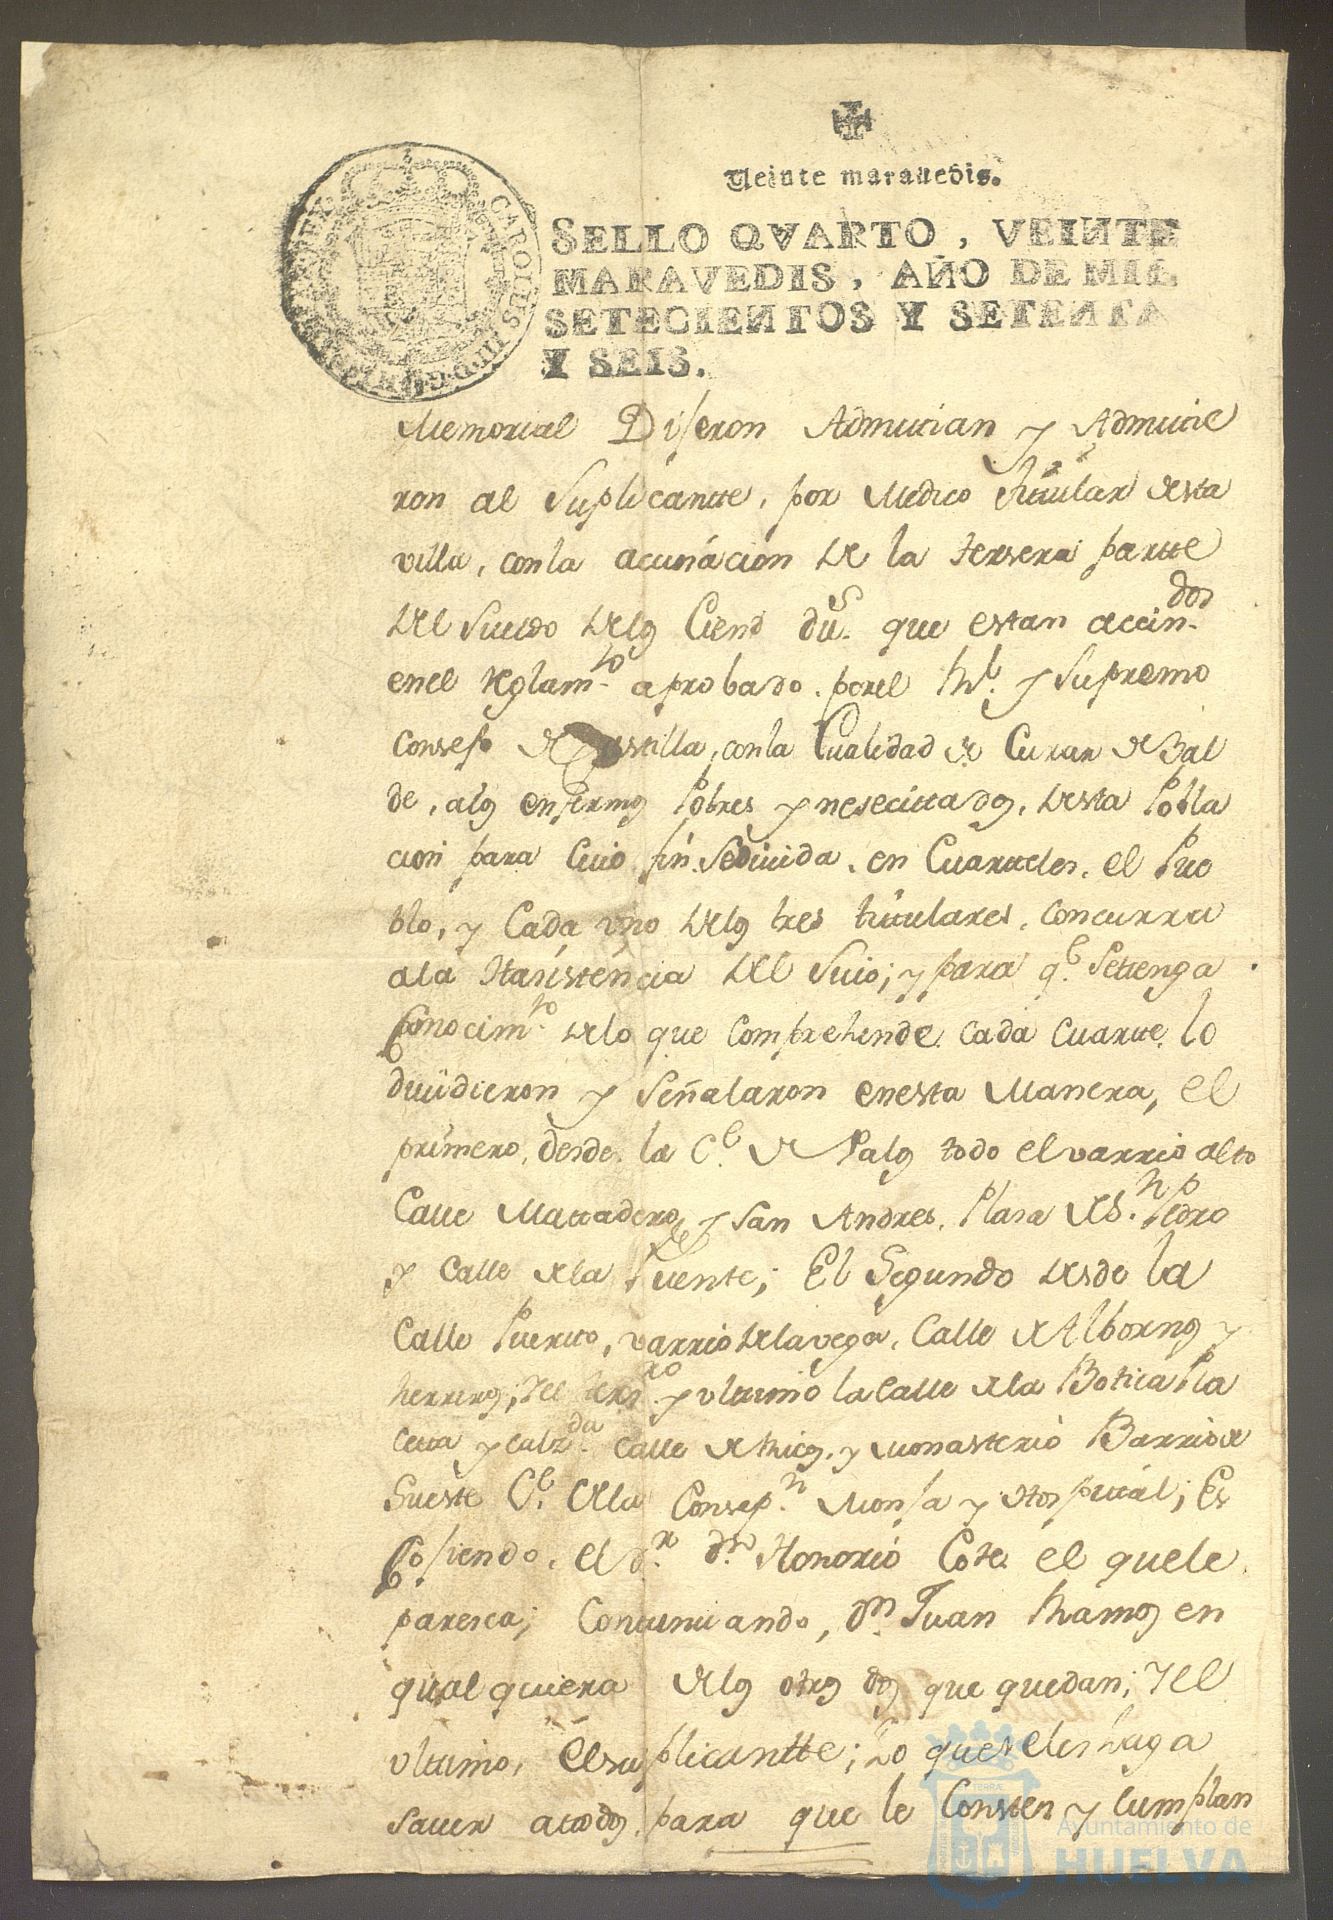 Veinte maravedis.
CAROLUS III D.G.
SELLO QVARTO, VEINTE
MARAVEDIS, AÑO DE MIL
SETECIENTOS Y SETENTA
Y SEIS.
Memorial Dixeron Admitian y Admitie
ron al Suplicante, por Medico titular desta
villa, con la de la tersera partte
del Sueldo delos Cient dus. que estan
enel Reglamto. aprobado. porel Rl. y Supremo
Consejo de Castilla, con la Cualidad de Curar de Bal
de, alos enfermos Pobres y nesecittados, desta Pobla
cion para Cuio fin Sedivida. en Cuarteles. el Pue
blo, y Cada vno delos tres titulares. concurra
ala Hasistencia del Suio; y para qe. Setenga
Conocimto. delo que Comprehende. Cada Cuartte. lo
dividieron y Señalaron enesta Manera, el
primero, desde. la Ce. de Palos todo el varrio alto
Calle Mattadero, y San Andres. Plasa deSn. Pedro
y Calle dela Fuente; El Segundo desde la
Calle Puerto, varrio delavega, Calle de Albornos y
herreros, y el terso. y vltimo la Calle dela Botica Pla
cetta y Calzda. Calle de Ricos. y Monasterio Barrio de
Sueste Ce. dela Consepn. Monja y Hospital; Es
Cojiendo. el Dr. Dn. Honorio Cote. el quele
paresca; Continuando, Dn. Juan Ramos en
qualquiera delos otros dos que quedan; y el
vltimo, elsuplicantte; Lo que seles haga
saver atodos para que le Conste y Cumplan
Ayuntamiento de
HUELVA